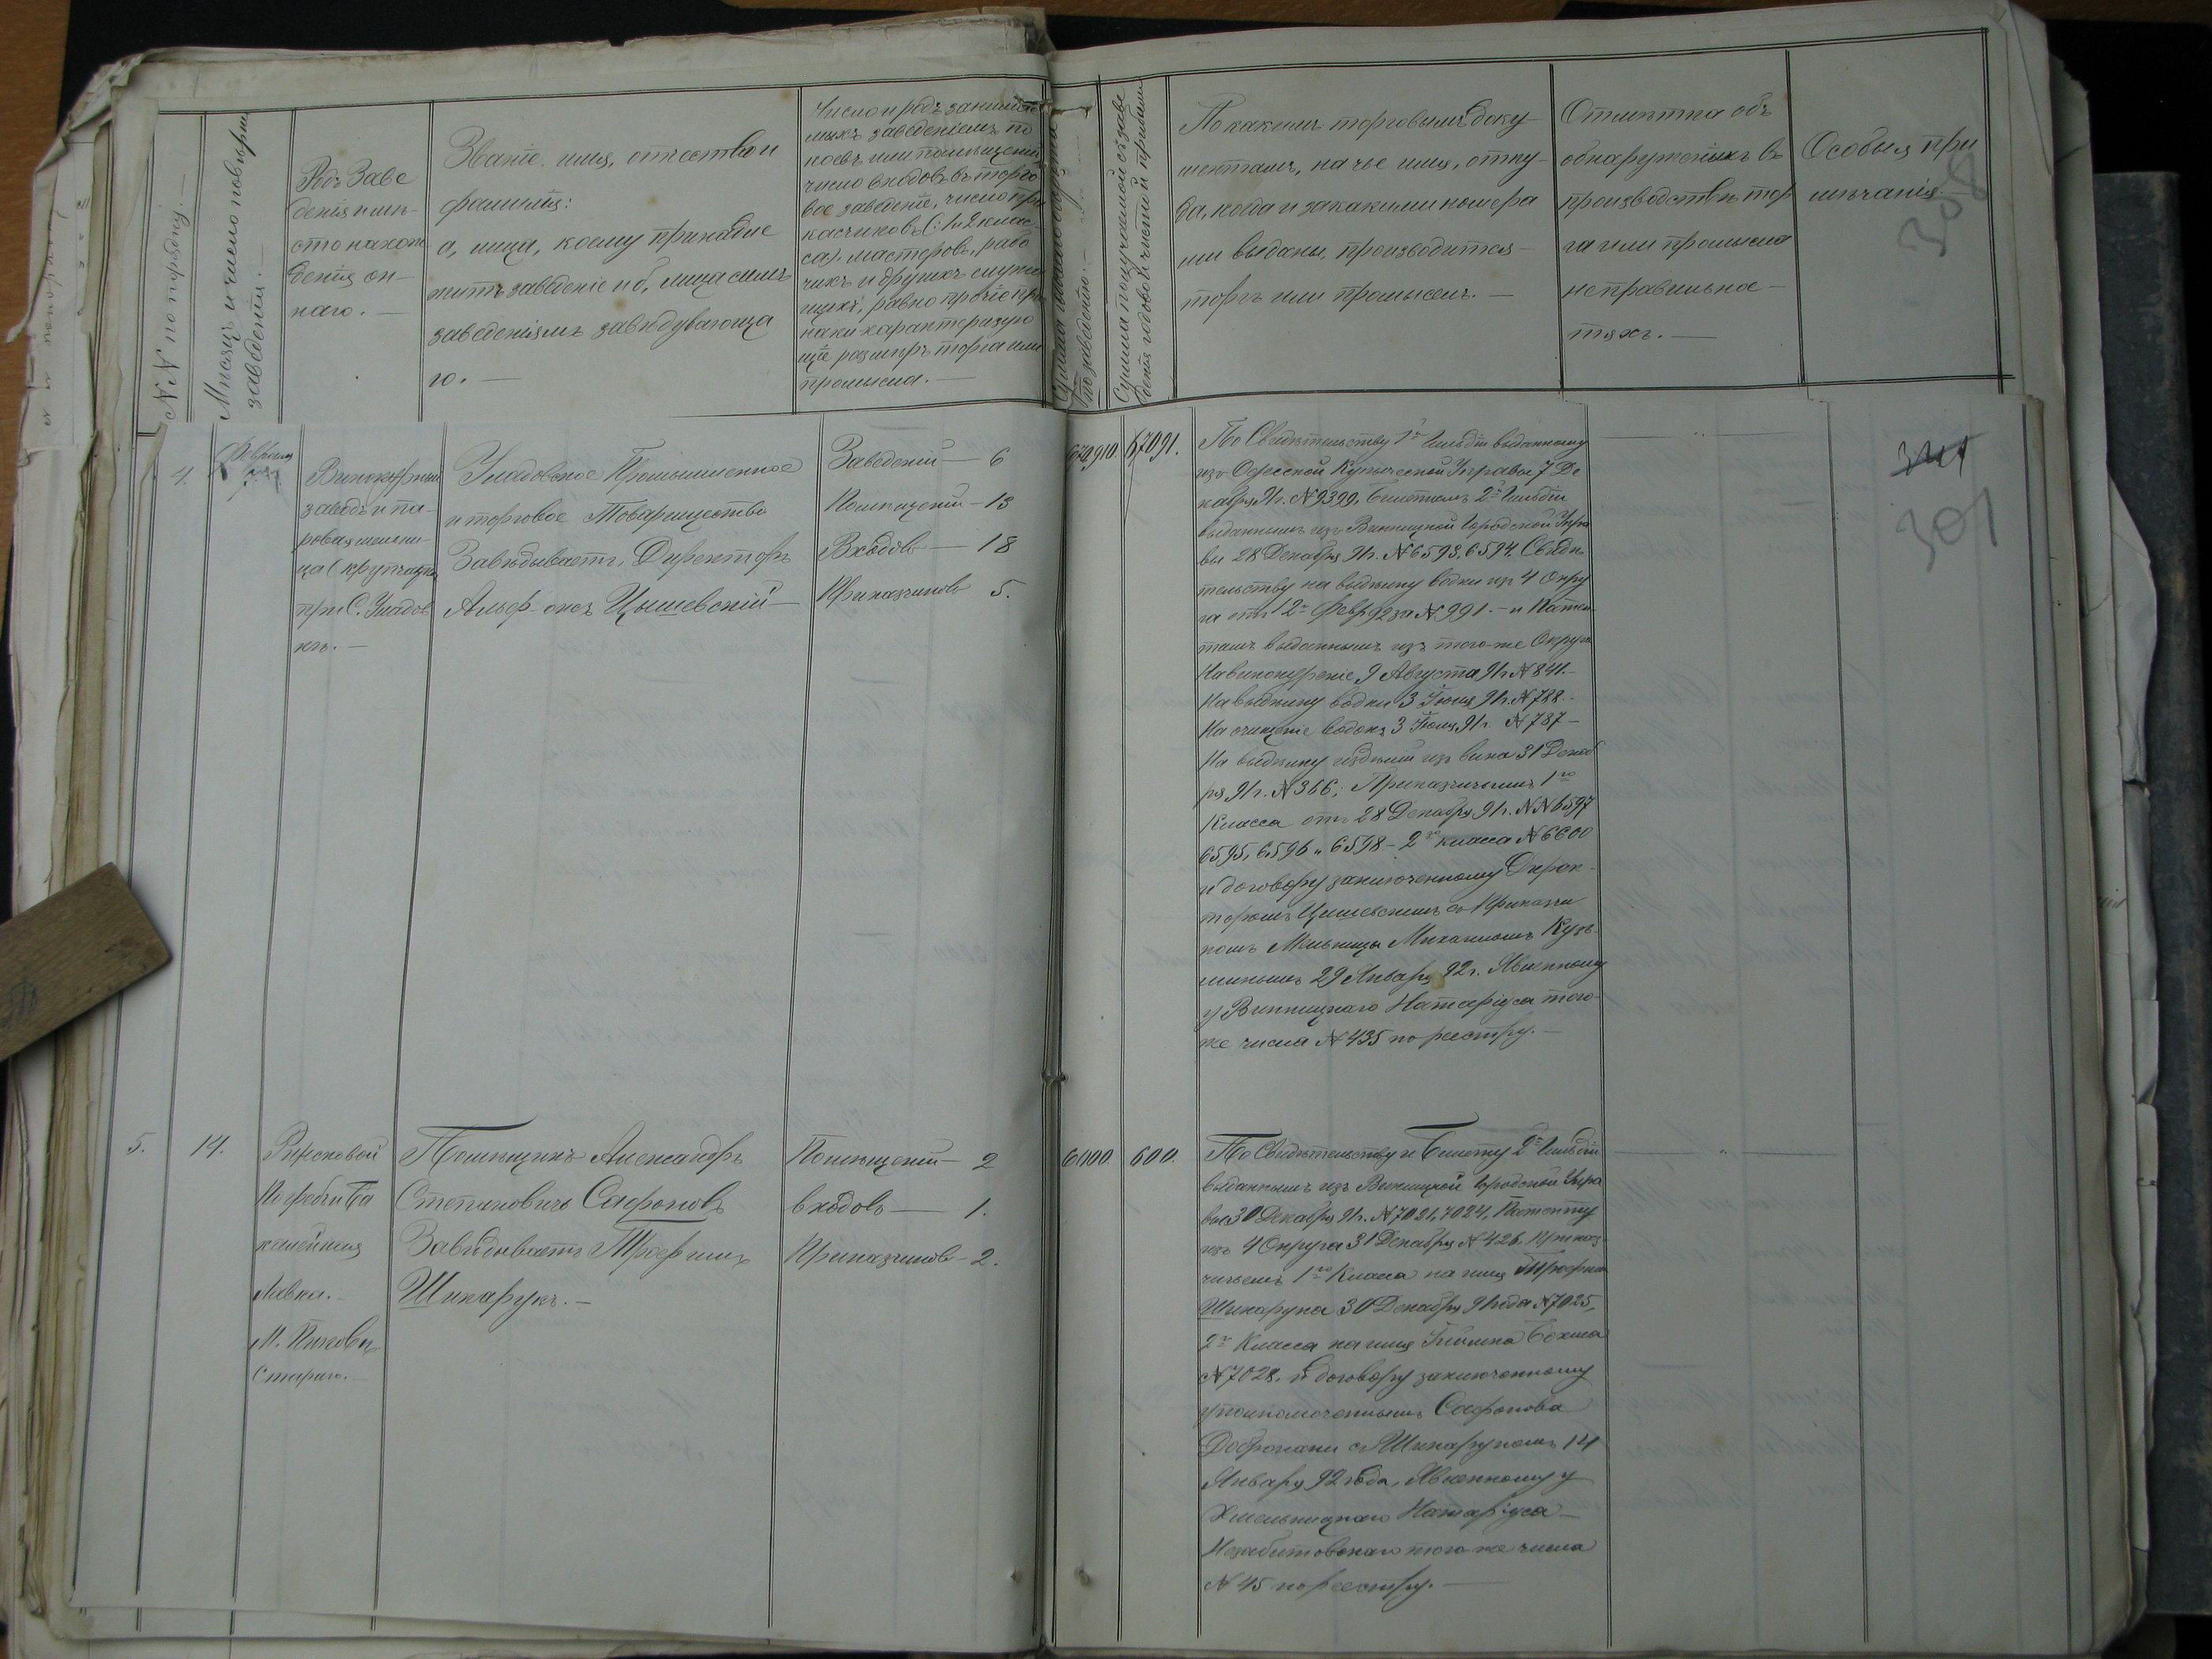 №№ по порядку. —
Месяцъ и число повѣрки
заведенія. —
Родъ Заве
денія и мѣ-
сто нахож
денія он-
наго. —
Званіе, имя, отчество и
фамилія:
а, лица, коему принадле
житъ заведеніе и б, лица симъ
заведеніямъ завѣдывающа
го. —
Число и родъ занимае
мыхъ заведеніемъ по
коевъ или помѣщеній
число входовъ въ торго
вое заведеніе, число при
касчиковъ (: 1 и 2 клас-
са). мастеровъ, рабо
чихъ и другихъ служа
щихъ, равно прочіе приз
наки характеризую
щіе размѣръ торга или
промысла. —
Сумма годоваго оборота
по заведенію. —
Сумма получаемой съ заве
денія годовой чистой прибыли
По какимъ торговымъ доку-
ментамъ, на чье имя, отку-
да, когда и за какими номера
ми выданы, производится —
торгъ или промыселъ. —
Отмѣтка объ
обнаруженныхъ въ
производствѣ тор
га или промысла
неправильнос —
тяхъ. —
Особыя при
мѣчанія. —
308
4.
Февраля
Винокуренный
заводъ и па-
ровая мельни-
ца (крупчатка
при С. Уладов
кѣ. —
Уладовское Промышленное
и торговое Товарищество
Завѣдываетъ, Директоръ
Альфонсъ Цышевскій —
Заведеній — 6
Помѣщеній — 13
Входовъ — 18
Приказчиковъ 5.
670910.
67091.
По Свидѣтельству 1й Гильдіи выданному
изъ Одесской Купеческой Управы 7 Де
кабря 91г. № 9399, билетамъ 2й Гильдіи
выданнымъ изъ Винницкой Городской Упра
вы 28 Декабря 91г. № 6593, 6594, Свидѣ
тельству на выдѣлку водки изъ 4 Окру
га отъ 12го Февр 92 за № 991. — и Патен
тамъ выданнымъ изъ того-же Округа
На винокуреніе, 9 Августа 91г № 841. —
На выдѣлку водки 3 Іюля 91г. № 788. —
На очищеніе водокъ 3 Іюля 91г. № 787 —
На выдѣлку издѣлій изъ вина 31 Декаб
ря 91г. № 366; Приказчичьимъ 1го
Класса отъ 28 Декабря 91г. №№ 6597
6595, 6596 и 6598 — 2го класса № 6600
и договору заключенному Дирек-
торомъ Цышевскимъ съ Приказчи
комъ Мельницы Михаиломъ Кузь-
минымъ 29 Января 92г. Явленному
у Винницкаго Натаріуса того-
же числа № 435 по реестру. —
301
5.
14.
Ренсковой
Погребъ и Ба
калейная
Лавка. —
М. Пиковъ
Старый. —
Помѣщикъ Александръ
Степановичъ Сафоновъ
Завѣдываетъ Трофимъ
Шинкарукъ. —
Помѣщеній — 2
входовъ — 1.
Приказчиковъ — 2.
6000.
600.
По Свидѣтельству и билету 2й Гильдіи
выданнымъ изъ Винницкой Городской Упра
вы 30 Декабря 91г. № 7021, 7024, Патенту
изъ 4 Округа 31 Декабря № 426, Приказ-
чичьемъ 1го Класса на имя Трофима
Шинкарука 30 Декабря 91 года № 7025,
2го Класса на имя
№ 7028. и договору заключенному
уполномоченнымъ Сафонова
съ Шинкарукомъ 14
Января 92 года, Явленному у
Хмельницкаго Натаріуса —
Незабитовскаго того-же числа
№ 45 по реестру. —